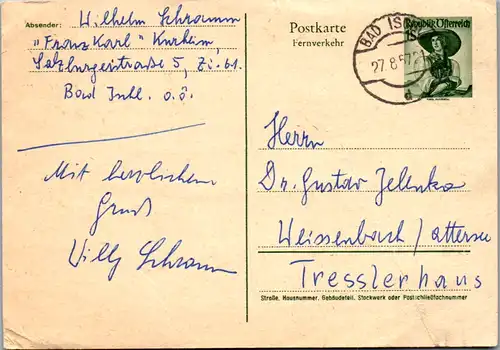 Absender: Wilhelm Schramm
"Franz Karl" Kurheim,
Salzburgerstraße 5, Zi. 61.
Bad Ischl. o.ö.
Mit herzlichem
Gruß
Willy Schramm
Postkarte
Fernverkehr
BAD IS
27.8.57
d
Republik Österreich
Herrn
Dr. Gustav Jelenka
Weissenbach/Attersee
Tresslerhaus
Straße, Hausnummer, Gebäudeteil, Stockwerk oder Postschließfachnummer